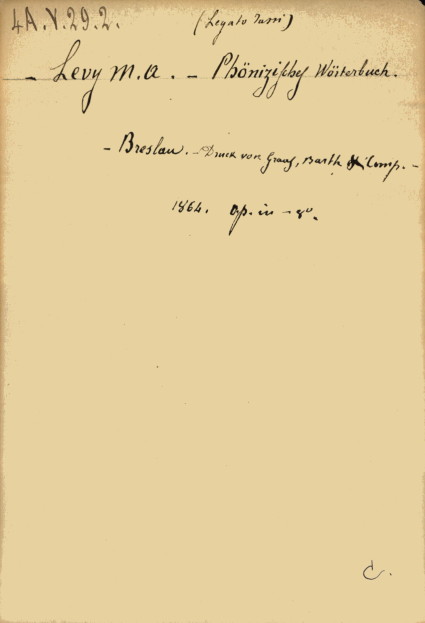 4A.V.29.2. (Legato Tassi)
- Levy M.A. - Phönizisches Wörterbuch.
- Breslau. - Druck von Grass, Barth & Comp. -
1864. Op. in - 8º.
C.